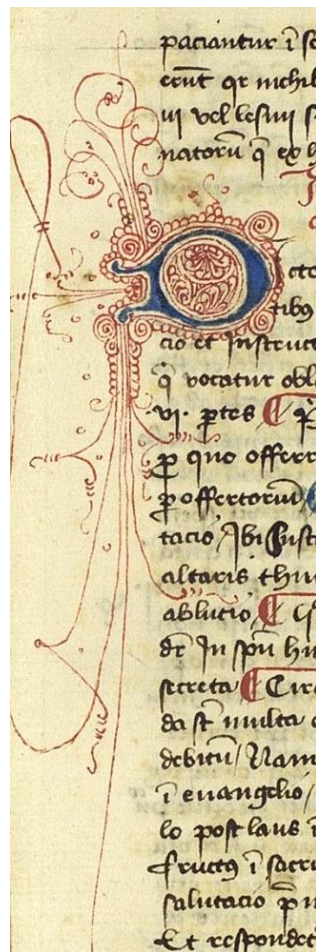 paciantur ī se
erūt qr nichil
ui vel lesiui s
natorū q̄ ex h
D
icto
tibꝰ
cio et Instructi
q̄ vocatur obla
·vi· ꝑtes ¶
ꝑ quo offerr
ꝑ offertoriū
tacio / Ibi
altaris thur
ablucio ¶
dr̄ In spū hu
secreta ¶ Circ
da st̄ multa
debitū / Nam
ī euangelio /
lo post laus ī
fructꝰ ī sacri
salutacio
Et respondet